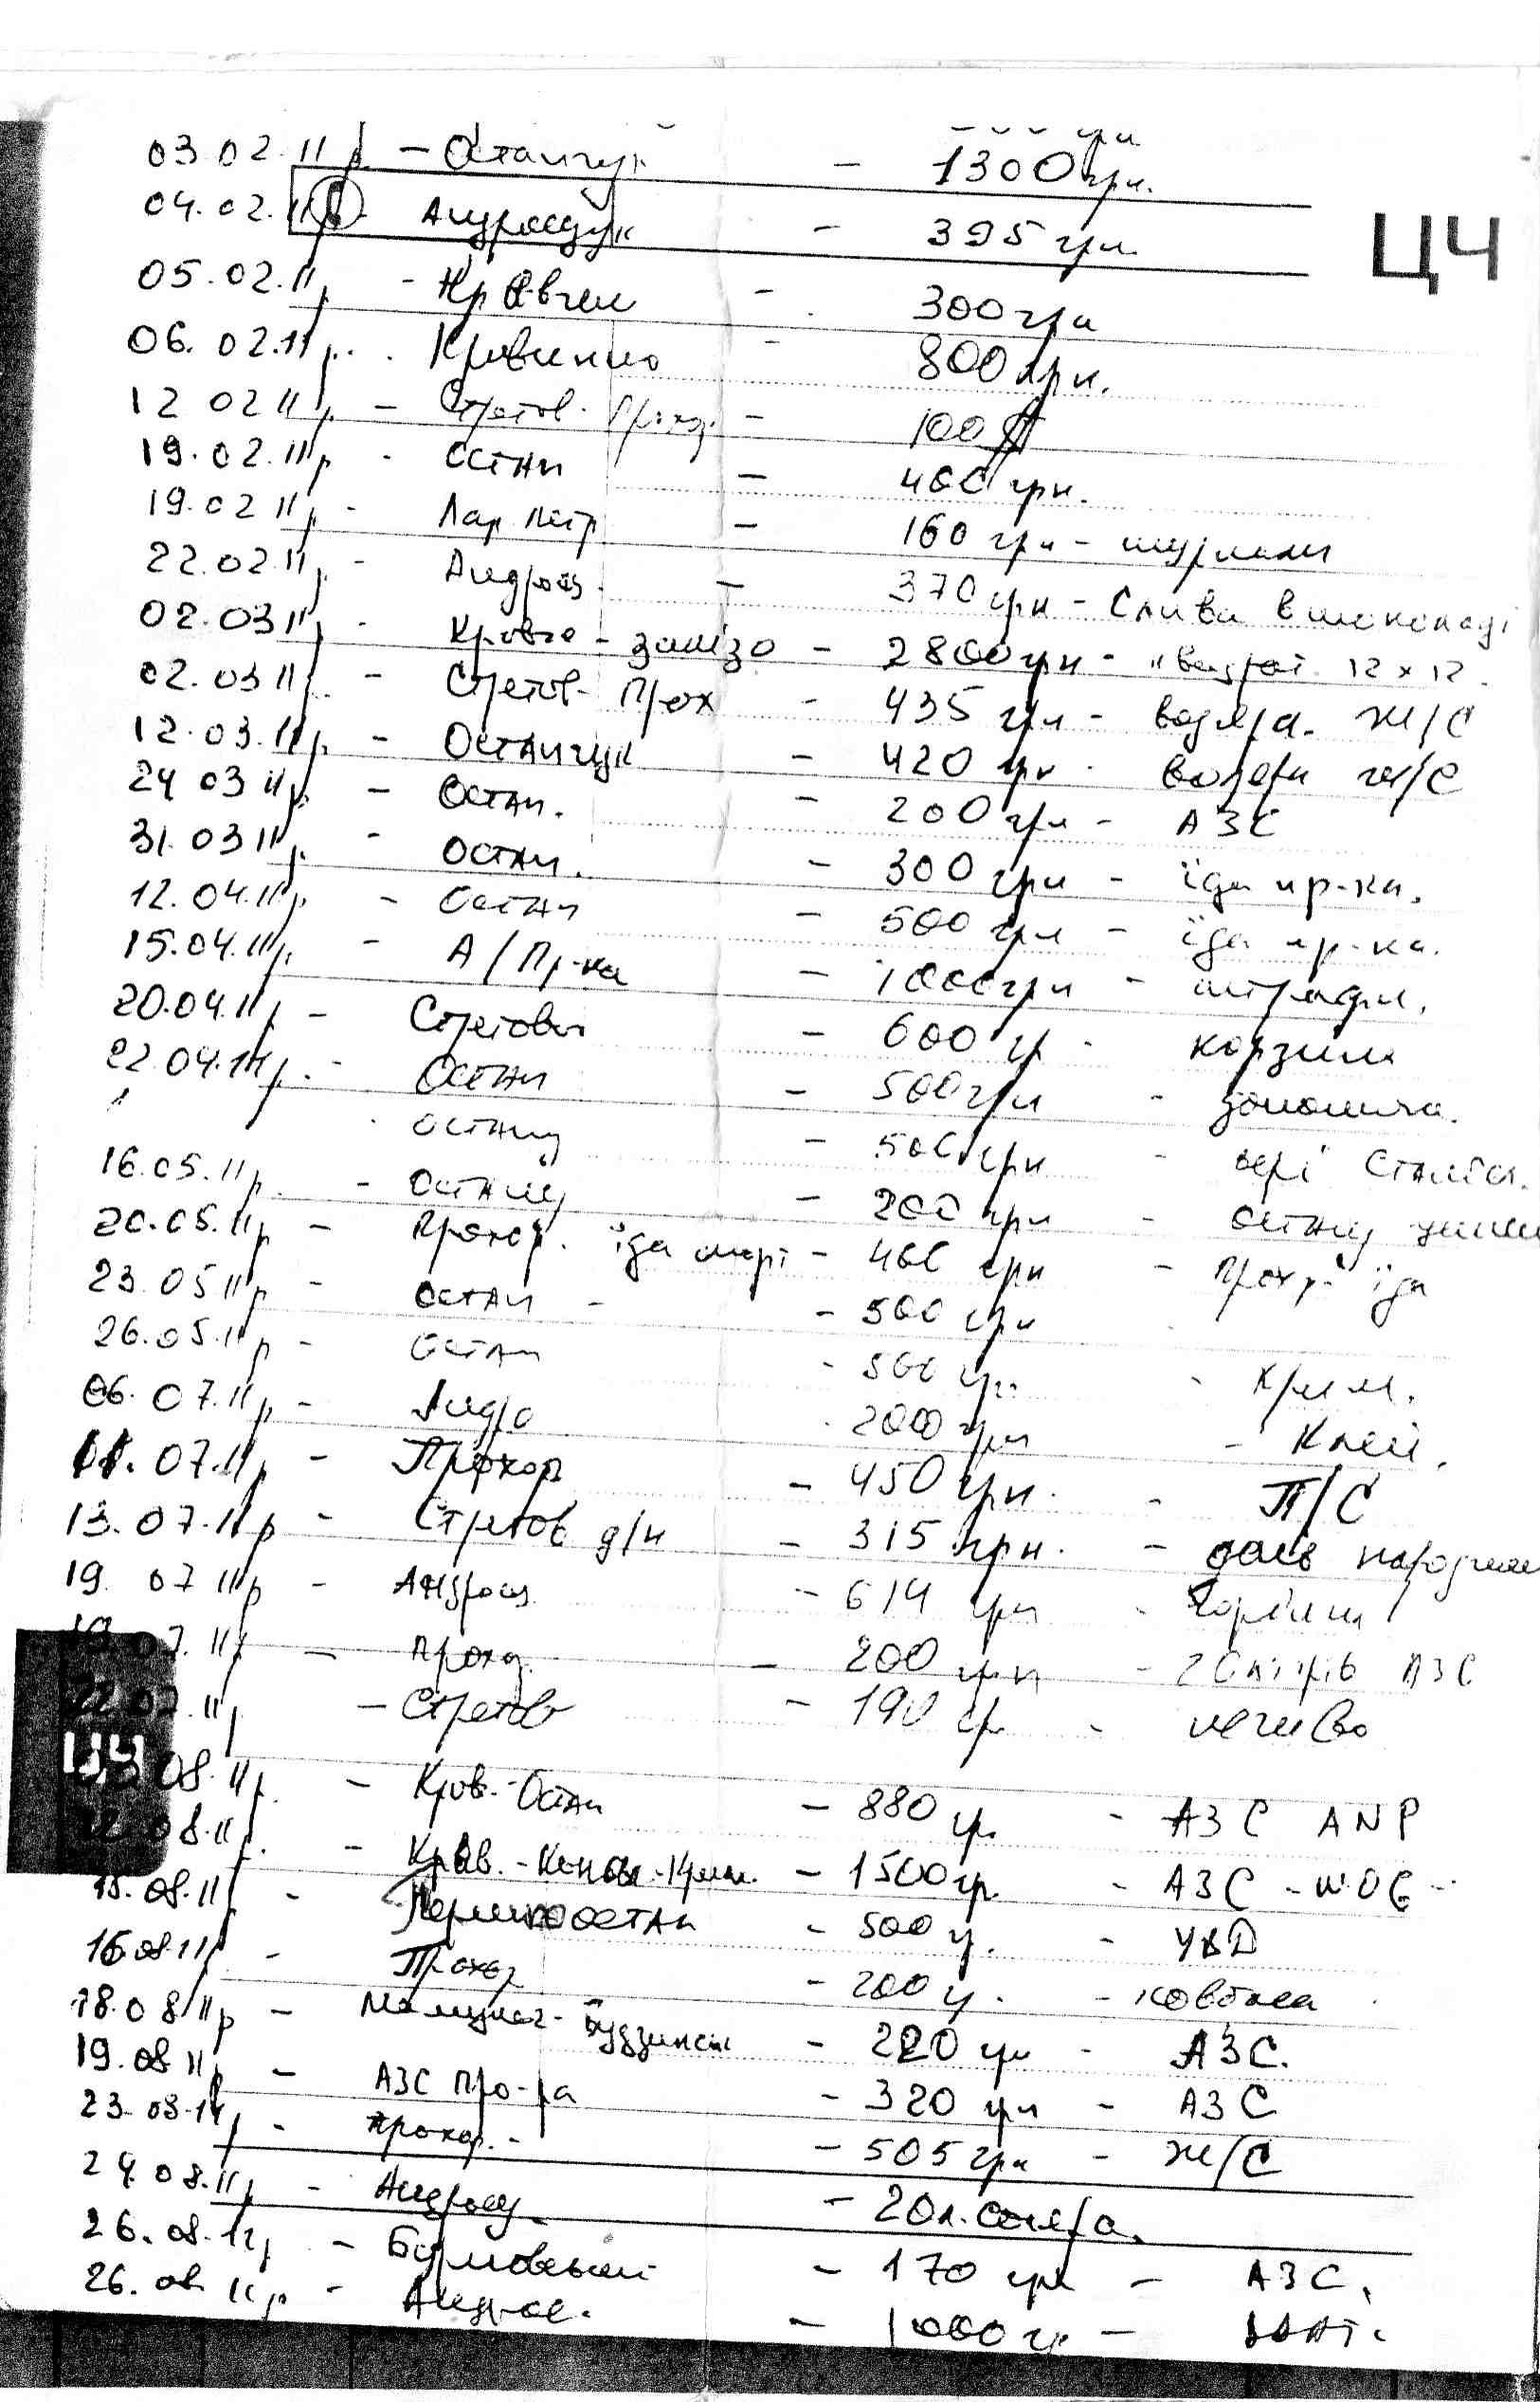 03.02.11р. - Остапчук - 1300 грн.
04.02.11р - Андрощук - 395 грн.
ЦЧ
05.02.11р - - 300 грн
06.02.11р. - 800 грн.
12 02 11р - Стретов. Прох. - 100
19.02.11р - Остап - 400 грн.
19.02 11р - Лар Петр - 160 грн -
22.02.11р - Андрощ. - 370 грн - Слива в шоколаді
02.03 11р - Кравче - залізо - 2800 грн - квадрат. 12 х 12.
02.03 11р. - Стретов - Прох - 435 грн - водяра. Ж/С
12.03.11р. - Остапчук - 420 грн - Ж/С
24 03 11р. - Остап. - 200 грн - АЗС
31.03 11р. - Остап. - 300 грн - їда пр-ка.
12.04.11р. - Остап - 500 грн - їда пр-ка.
15.04.11р. - А/Пр-ка - 1000 грн - штрафи.
20.04.11р - Стретович - 600 гр - корзина
22.04.11р. - Остап - 500 грн - допомога.
Остапч - 500 грн -
16.05.11р. - Остапч - 200 грн - Остапч
20.05.11р - Прохор. їда - 400 грн - Прохор їда
23.05 11р - Остап - - 500 грн
26.05.11р - Остап - 500 гр. - Крим.
06.07.11р - Андро 2000 грн - Клей.
11.07.11р - Прохор - 450 грн. - П/С
13.07.11р - Стретов д/н - 315 грн. - день народжен
19. 07 11р - Андрощ. - 614 грн - горілка
19.07.11р - Прохор. - 200 грн - 20 літрів АЗС
22.07.11р - Стретов - 190 гр - печиво
ЦЧ
08.11р. - Крав.-Остап - 880 гр. - АЗС ANP
12.08.11р. - Крав. - - 1500 гр. - АЗС - WOG -
15.08.11р. - Остап - 500 г. -
16 08.11р - Прохор - 200 г. - ковбаса
18.08 11р - - 220 грн - АЗС.
19.08 11р - АЗС Про-ра - 320 грн - АЗС
23.08.11р - Прохор. - - 505 грн - Ж/С
24.08.11р - Андрощ. - 20л. соляра.
26.08.11р - - 170 грн - АЗС.
26.08 11р. - Андрос. - 1000 гр -